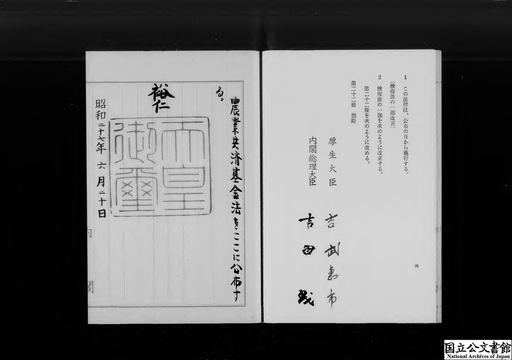 1 この法律は、公布の日から施行する。
(検疫法の一部改正)
2 検疫法の一部を次のように改正する。
第二十二條を次のように改める。
第二十二條 削除
厚生大臣 吉武恵市
内閣総理大臣 吉田茂
農業共済基金法をここに公布す
る。
裕仁
天皇御璽
昭和二十七年六月二十日
内閣
国立公文書館
National Archives of Japan